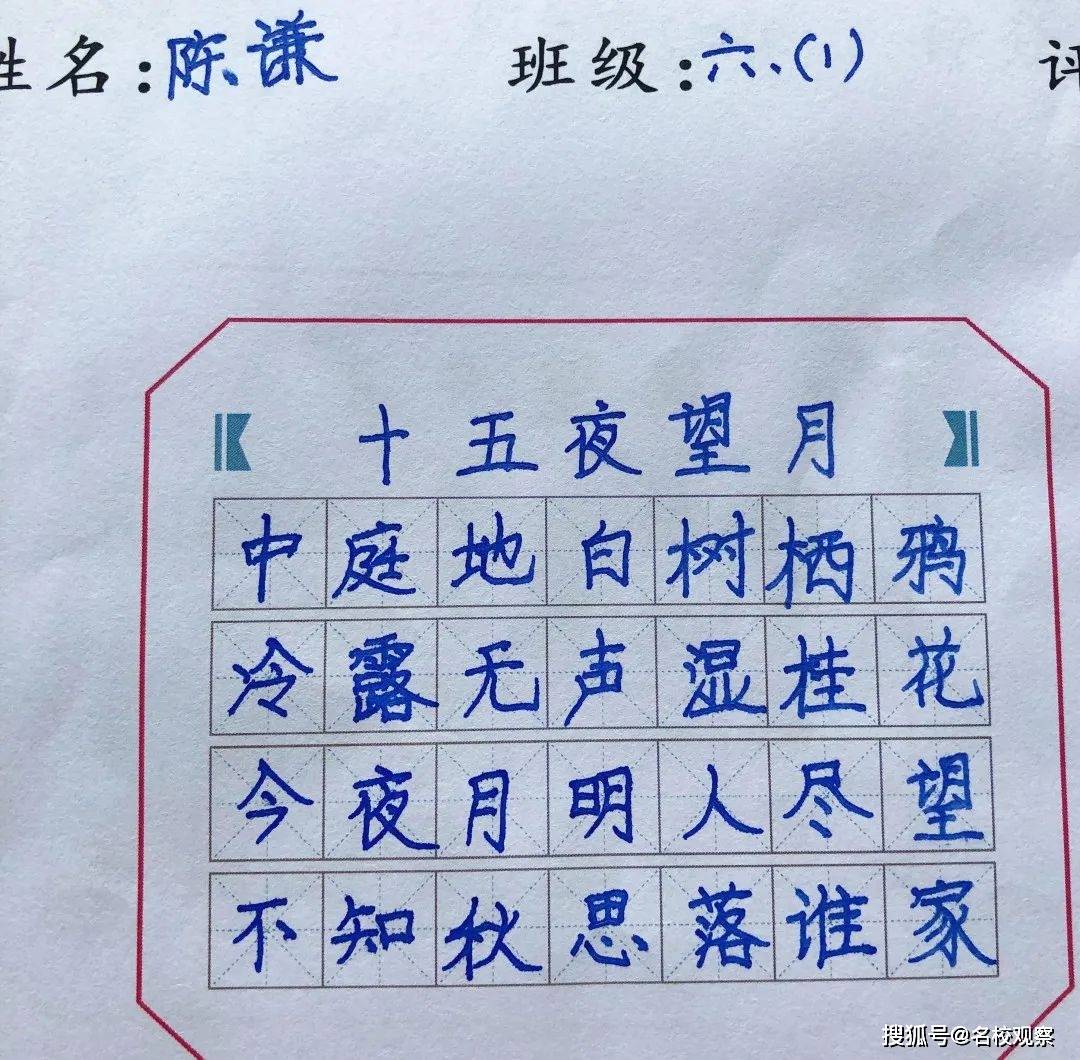 姓名:陈谦 班级:六、(1) 评
十五夜望月
中庭地白树栖鸦
冷露无声湿桂花
今夜月明人尽望
不知秋思落谁家
搜狐号@名校观察